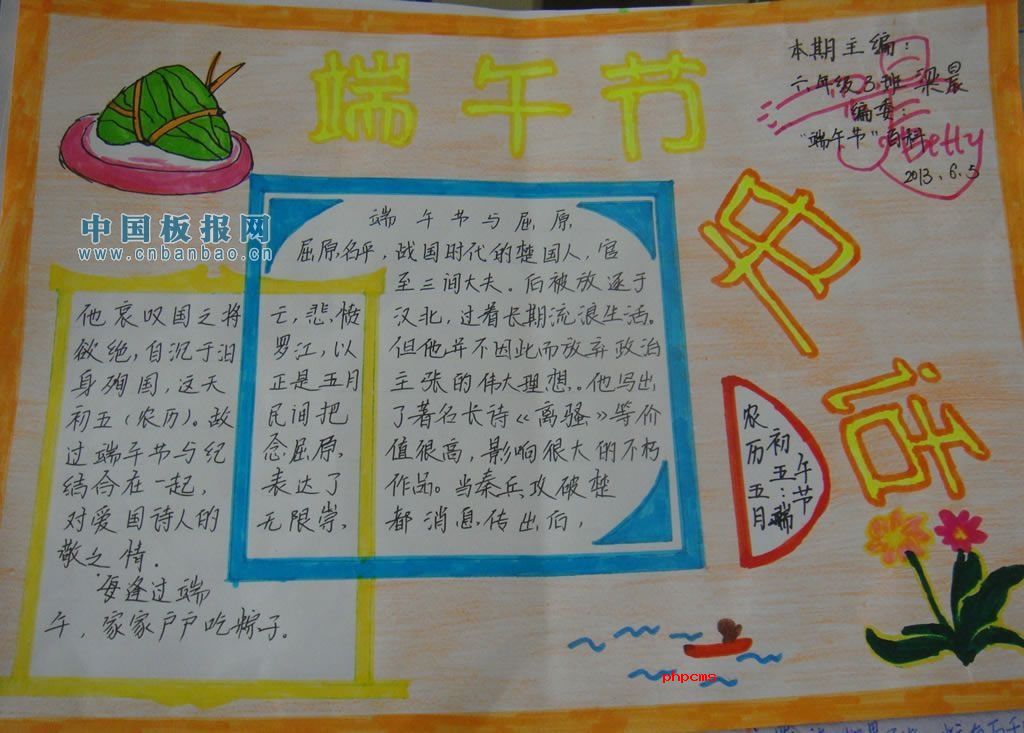 端午节
本期主编：
六年级3班 梁晨
编委：
“端午节”百科
Betty
2013.6.5
史话
中国板报网
www.cnbanbao.cn
端午节与屈原
屈原名平，战国时代的楚国人，官
至三闾大夫。后被放逐于
汉北，过着长期流浪生活。
但他并不因此而放弃政治
主张的伟大理想。他写出
了著名长诗《离骚》等价
值很高，影响很大的不朽
作品。当秦兵攻破楚
都消息传出后，
他哀叹国之将亡，悲愤
欲绝，自沉于汨罗江，以
身殉国，这天正是五月
初五（农历）。故民间把
过端午节与纪念屈原，
结合在一起，表达了
对爱国诗人的无限崇，
敬之情．
每逢过端
午，家家户户吃粽子。
农历五月
初五：端
午节
phpcms